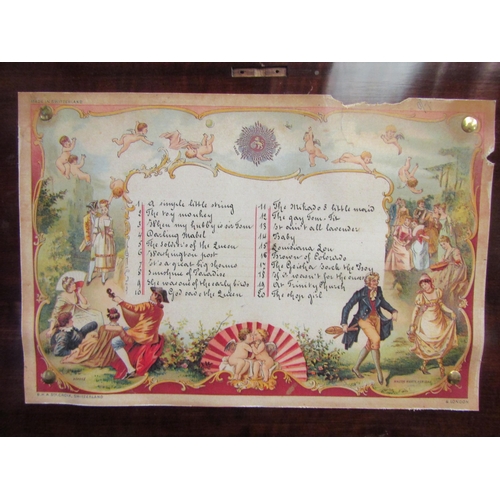 1 A simple little string
2 The toy monkey
3 When my hubby is
4 Darling Mabel
5 The soldiers of the Queen
6 Washington post
7 It's a great big shame
8 Sunshine of Paradise
9 She was one of the early birds
10 God save the Queen
11 The Mikado 3 little maid
12 The gay Tom-Tit
13 It ain't all lavender
14 Baby
15 Louisiana Lou
16 Brown of Colorado
17 The Geisha Jack the Boy
18 If it wasn't for the
19 At Trinity Church
20 The shop girl